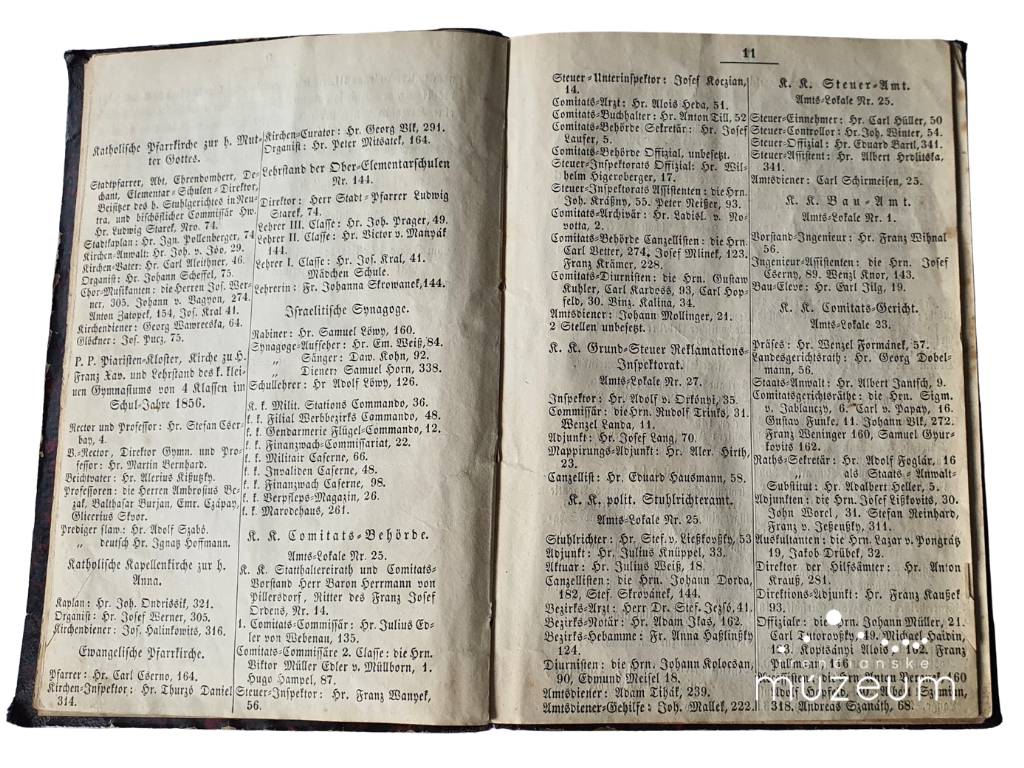 Katholische Pfarrkirche zur h. Mut-
ter Gottes.
Stadtpfarrer, Abt, Ehrendomherr, De-
chant, Elementar-Schulen-Direktor,
Beisitzer des h. Stuhlgerichtes in Neu-
tra, und bischöflicher Commissär Hw.
Hr. Ludwig Starek, Nro. 74.
Stadtkaplan: Hr. Ign. Pollenberger, 74
Kirchen-Anwalt: Hr. Joh. v. Jäo, 29.
Kirchen-Vater: Hr. Carl Aleithner, 46.
Organist: Hr. Johann Scheffel, 75.
Chor-Musikanten: die Herren Jos. Wer-
ner, 305. Johann v. Vagyon, 274.
Anton Zatopek, 154, Jos. Kral 41.
Kirchendiener: Georg Wawrecska, 64.
Glöckner: Jos. Pucz, 75.
P. P. Piaristen-Kloster, Kirche zu H.
Franz Xav. und Lehrstand des k. klei-
nen Gymnasiums von 4 Klassen im
Schul-Jahre 1856.
Rector und Professor: Hr. Stefan Cser-
bay, 4.
V.-Rector, Direktor Gymn. und Pro-
fessor: Hr. Martin Bernhard.
Beichtvater: Hr. Alexius Kißuzky.
Professoren: die Herren Ambrosius Be-
zak, Balthasar Burjan, Emr. Czápay,
Glicerius Skvor.
Prediger slaw.: Hr. Adolf Szabó.
„ deutsch Hr. Ignatz Hoffmann.
Katholische Kapellenkirche zur h.
Anna.
Kaplan: Hr. Joh. Ondrissik, 321.
Organist: Hr. Josef Werner, 305.
Kirchendiener: Jos. Halinkowits, 316.
Evangelische Pfarrkirche.
Pfarrer: Hr. Carl Cserno, 164.
Kirchen-Inspektor: Hr. Thurzó Daniel
314.
Kirchen-Curator: Hr. Georg Vlk, 291.
Organist: Hr. Peter Mitsatek, 164.
Lehrstand der Ober-Elementarschulen
Nr. 144.
Direktor: Herr Stadt-Pfarrer Ludwig
Starek, 74.
Lehrer III. Classe: Hr. Joh. Prager, 49.
Lehrer II. Classe: Hr. Victor v. Manyák
144.
Lehrer I. Classe: Hr. Jos. Kral, 41.
Mädchen Schule.
Lehrerin: Fr. Johanna Skrowanek, 144.
Israelitische Synagoge.
Rabiner: Hr. Samuel Löwy, 160.
Synagoge-Aufseher: Hr. Em. Weiß, 84.
„ Sänger: Daw. Kohn, 92.
„ Diener: Samuel Horn, 338.
Schullehrer: Hr Adolf Löwy, 126.
k. k. Milit. Stations Commando, 36.
k. k. Filial Werbbezirks Cammando, 48.
k. k. Gendarmerie Flügel-Commando, 12.
k. k. Finanzwach-Commissariat, 22.
k. k. Militair Caserne, 66.
k. k. Invaliden Caserne, 48.
k. k. Finanzwach Caserne, 98.
k. k. Verpflegs-Magazin, 26.
k. k. Marodehaus, 261.
K. K. Comitats-Behörde.
Amts-Lokale Nr. 25.
K. K. Statthaltereirath und Comitats-
Vorstand Herr Baron Herrmann von
Pillersdorf, Ritter des Franz Josef
Ordens, Nr. 14.
1. Comitats-Commissär: Hr. Julius Ed-
ler von Webenau, 135.
Comitats-Commissäre 2. Classe: die Hrn.
Viktor Müller Edler v. Müllborn, 1.
Hugo Hampel, 87.
Steuer-Inspektor: Hr. Franz Wanyek,
56.
11
Steuer-Unterinspektor: Josef Koczian,
14.
Comitats-Arzt: Hr. Alois Heda, 51.
Comitats-Buchhalter: Hr. Anton Till, 52
Comitats-Behörde Sekretär: Hr. Josef
Laufer, 5.
Comitats-Behörde Offizial, unbesetzt.
Steuer-Inspektorats Offizial: Hr. Wil-
helm Higersberger, 17.
Steuer-Inspektorats Assistenten: die Hrn.
Joh. Kráßny, 55. Peter Neißer, 93.
Comitats-Archivär: Hr. Ladisl. v. No-
votta, 2.
Comitats-Behörde Canzellisten: die Hrn.
Carl Vetter, 274. Josef Mlinek, 123.
Franz Krämer, 228.
Comitats-Diurnisten: die Hrn. Gustav
Kuhler, Carl Kardoss, 93, Carl Hop-
feld, 30. Vinz. Kalina, 34.
Amtsdiener: Johann Mollinger, 21.
2 Stellen unbesetzt.
K. K. Grund-Steuer Reklamations-
Inspektorat.
Amts-Lokale Nr. 27.
Inspektor: Hr. Adolf v. Orkónyi, 35.
Commissär: die Hrn. Rudolf Trinks, 31.
Wenzel Landa, 11.
Adjunkt: Hr. Josef Lang, 70.
Mappirungs-Adjunkt: Hr. Alex. Hirth,
23.
Canzellist: Hr. Eduard Hausmann, 58.
K. K. polit. Stuhlrichteramt.
Amts-Lokale Nr. 25.
Stuhlrichter: Hr. Stef. v. Ließkovßky, 53
Adjunkt: Hr. Julius Knüppel, 33.
Aktuar: Hr. Julius Weiß, 18.
Canzellisten: die Hrn. Johann Dorda,
182, Stef. Skrovánek, 144.
Bezirks-Arzt: Herr Dr. Stef. Jezsó, 41.
Bezirks-Notär: Hr. Adam Ikas, 162.
Bezirks-Hebamme: Fr. Anna Haßlinßky
124.
Diurnisten: die Hrn. Johann Kolocsan,
90, Edmund Meisel 18.
Amtsdiener: Adam Tihák, 239.
Amtsdiener-Gehilfe: Joh. Mallek, 222.
K. K. Steuer-Amt.
Amts-Lokale Nr. 25.
Steuer-Einnehmer: Hr. Carl Hüller, 50
Steuer-Controllor: Hr. Joh. Winter, 54.
Steuer-Offizial: Hr. Eduard Bartl, 341.
Steuer-Assistent: Hr. Albert Hrdlitska,
341.
Amtsdiener: Carl Schirmeisen, 25.
K. K. Bau-Amt.
Amts-Lokale Nr. 1.
Vorstand-Ingenieur: Hr. Franz Wihnal
56.
Ingenieur-Assistenten: die Hrn. Josef
Cserny, 89. Wenzl Knor, 143.
Bau-Eleve: Hr. Carl Jilg, 19.
K. K. Comitats-Gericht.
Amts-Lokale 23.
Präses: Hr. Wenzel Formánek, 57.
Landesgerichtsrath: Hr. Georg Dobel-
mann, 56.
Staats-Anwalt: Hr. Albert Jantsch, 9.
Comitatsgerichtsräthe: die Hrn. Sigm.
v. Jablanczy, 6. Carl v. Papay, 16.
Gustav Funke, 11. Johann Vlk, 272.
Franz Weninger 160, Samuel Gyur-
kovits 162.
Raths-Sekretär: Hr. Adolf Foglár, 16
als Staats-Anwalt-
Substitut: Hr. Adalbert Heller, 5.
Adjunkten: die Hrn. Josef Lißkovits, 30.
John Worel, 31. Stefan Reinhard,
Franz v. Jeßenßky, 311.
Auskultanten: die Hrn. Lazar v. Pongrátz
19, Jakob Drübek, 32.
Direktor der Hilfsämter: Hr. Anton
Krautz, 281.
Direktions-Adjunkt: Hr. Franz Kaußek
93.
Offiziale: die Hrn. Johann Müller, 21.
Carl 49. Michael
Koptsányi Alois, 162. Franz
160
318. Andreas Szanáth, 68.
múzeum